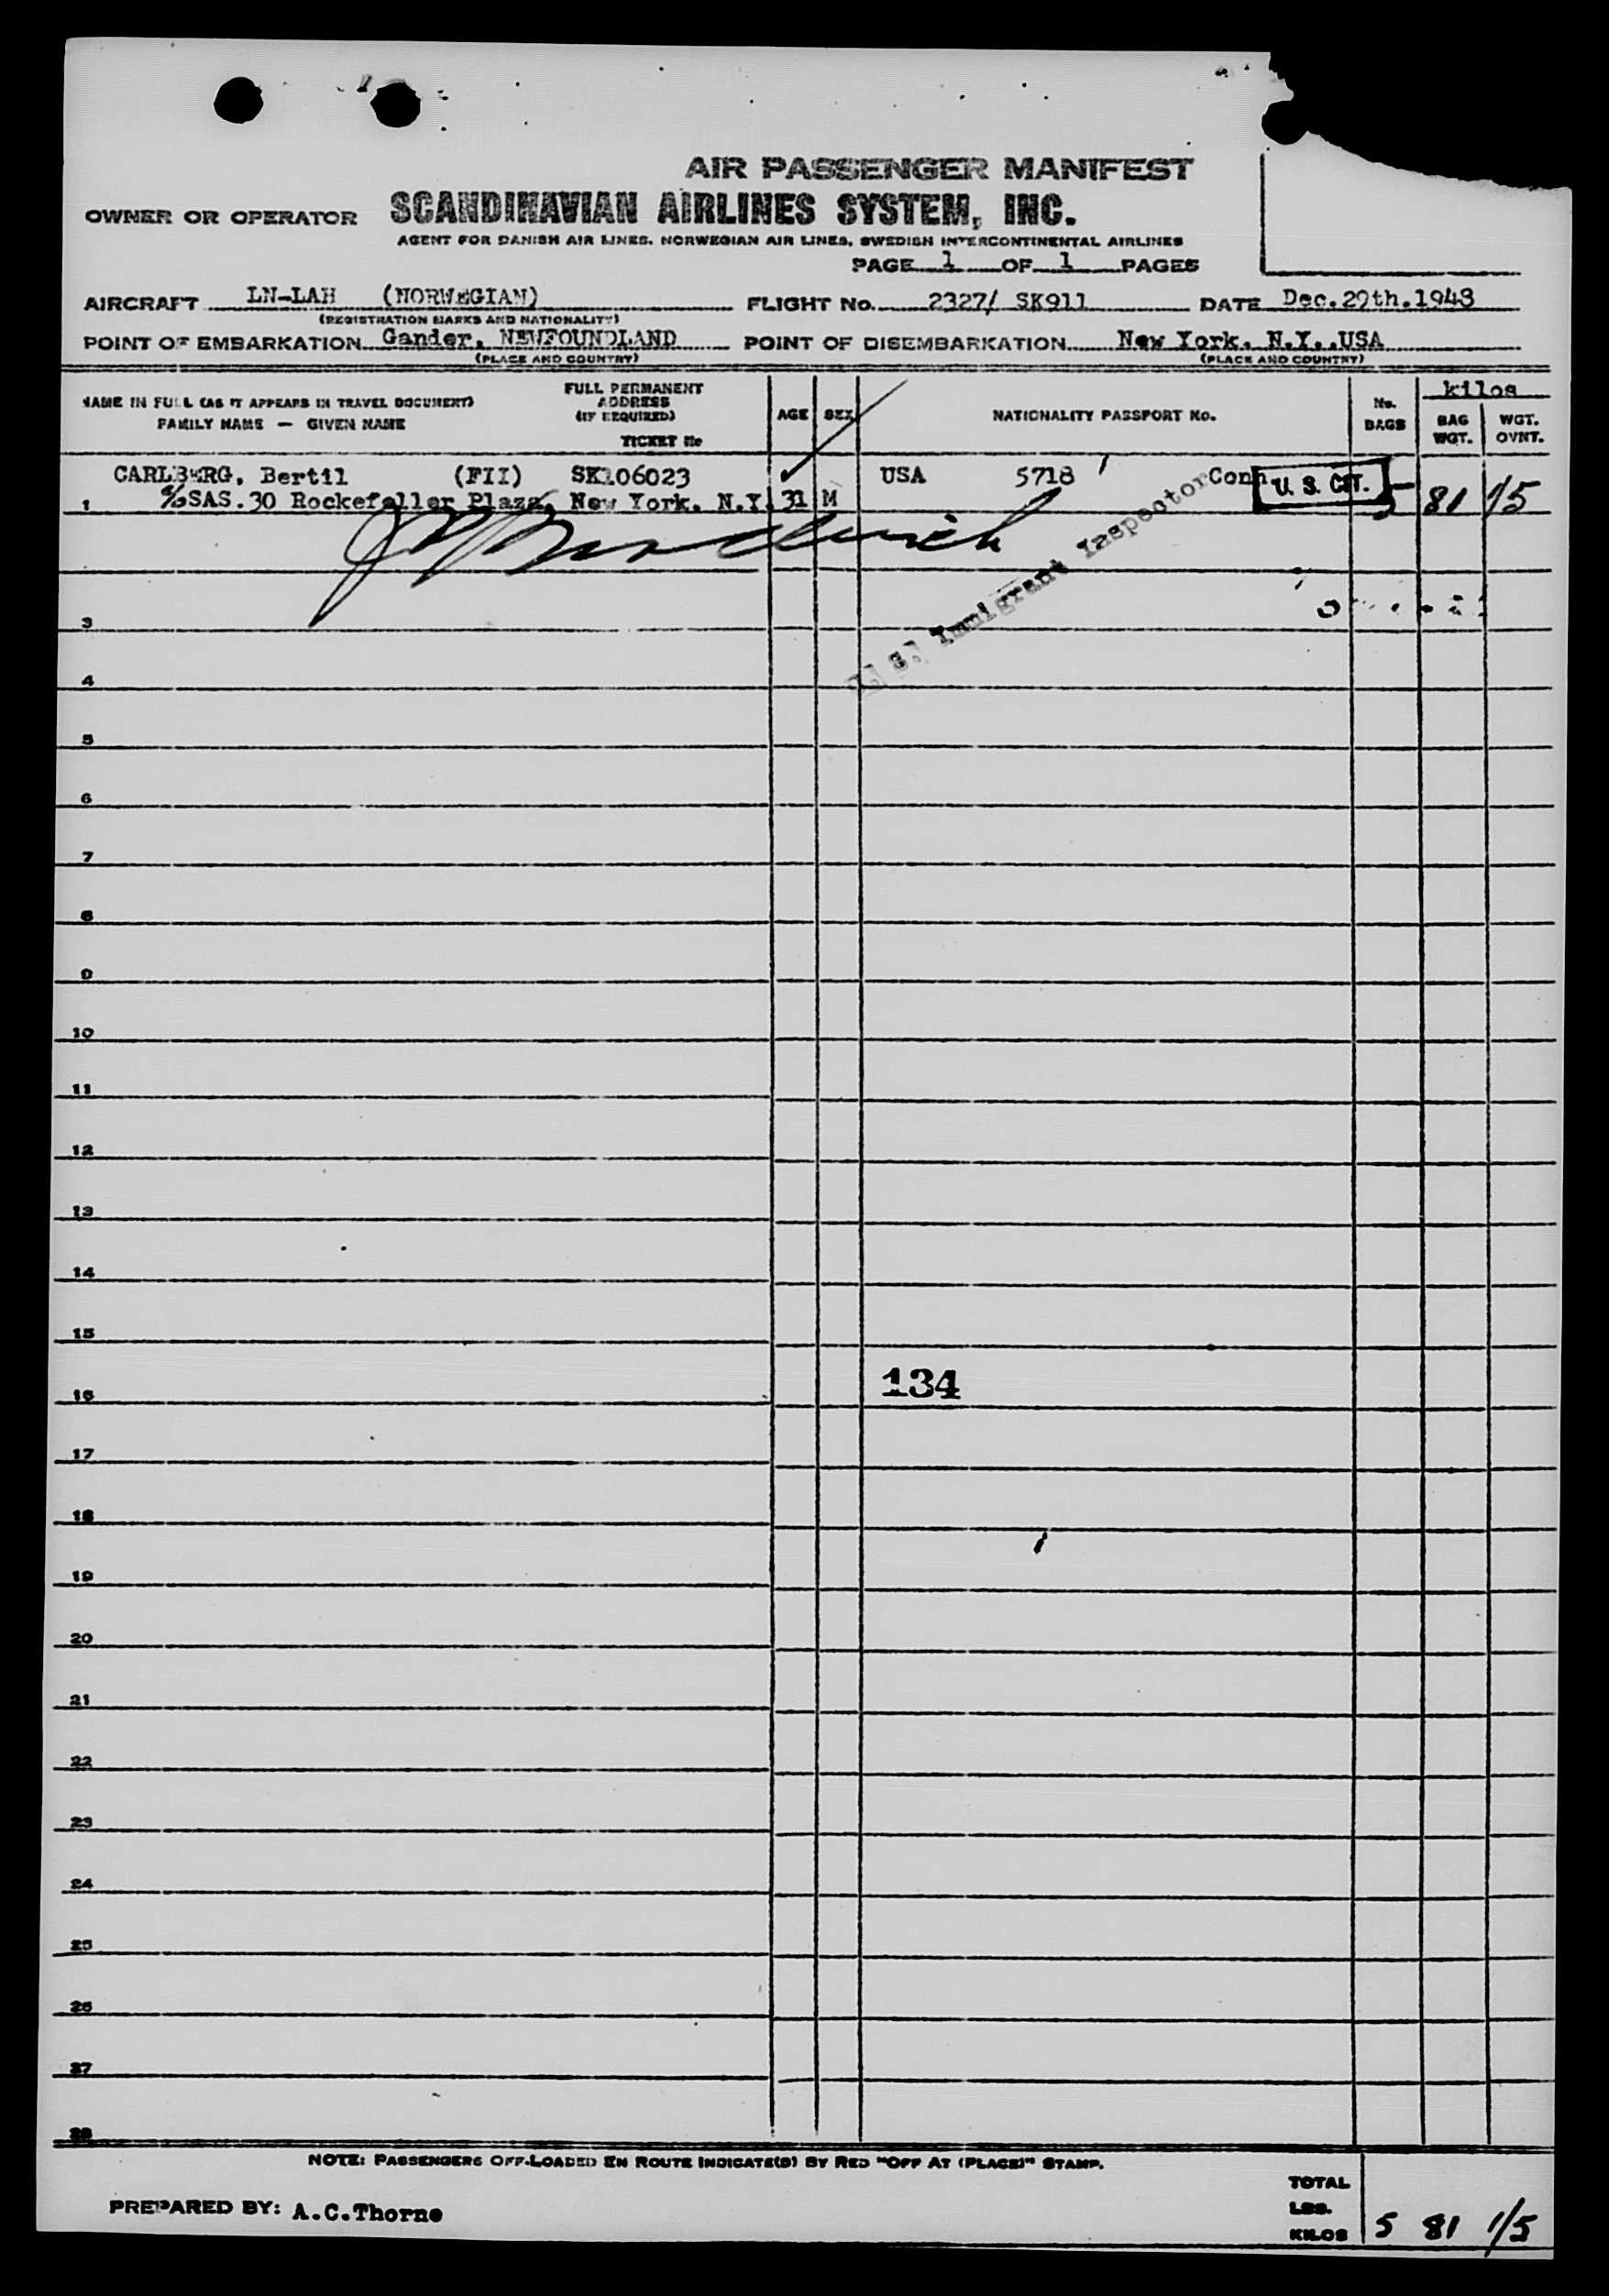 AIR PASSENGER MANIFEST
OWNER OR OPERATOR SCANDINAVIAN AIRLINES SYSTEM, INC.
AGENT FOR DANISH AIR LINES, NORWEGIAN AIR LINES, SWEDISH INTERCONTINENTAL AIRLINES
PAGE 1 OF 1 PAGES
AIRCRAFT LN-LAH (NORWEGIAN) FLIGHT No. 2327/ SK911 DATE Dec.29th.1948
(REGISTRATION MARKS AND NATIONALITY)
POINT OF EMBARKATION Gander, NEWFOUNDLAND POINT OF DISEMBARKATION New York. N.Y..USA
(PLACE AND COUNTRY) (PLACE AND COUNTRY)
NAME IN FULL (AS IT APPEARS IN TRAVEL DOCUMENT)
FAMILY NAME — GIVEN NAME
FULL PERMANENT
ADDRESS
(IF REQUIRED)
TICKET No
AGE SEX NATIONALITY PASSPORT No.
No.
BAGS
kilos
BAG
WGT.
WGT.
OVNT.
CARLBERG, Bertil (FII) SK106023 USA 5718 Conn U. S. CIT.
1 c/o SAS.30 Rockefeller Plaza, New York. N.Y. 31 M 5 81 1/5
Immigrant Inspector
3
4
5
6
7
8
9
10
11
12
13
14
15
134
16
17
18
19
20
21
22
23
24
25
26
27
28
NOTE: PASSENGERS OFF-LOADED EN ROUTE INDICATE(D) BY RED "OFF AT (PLACE)" STAMP.
PREPARED BY: A.C.Thorne
TOTAL
LBS.
KILOS 5 81 1/5